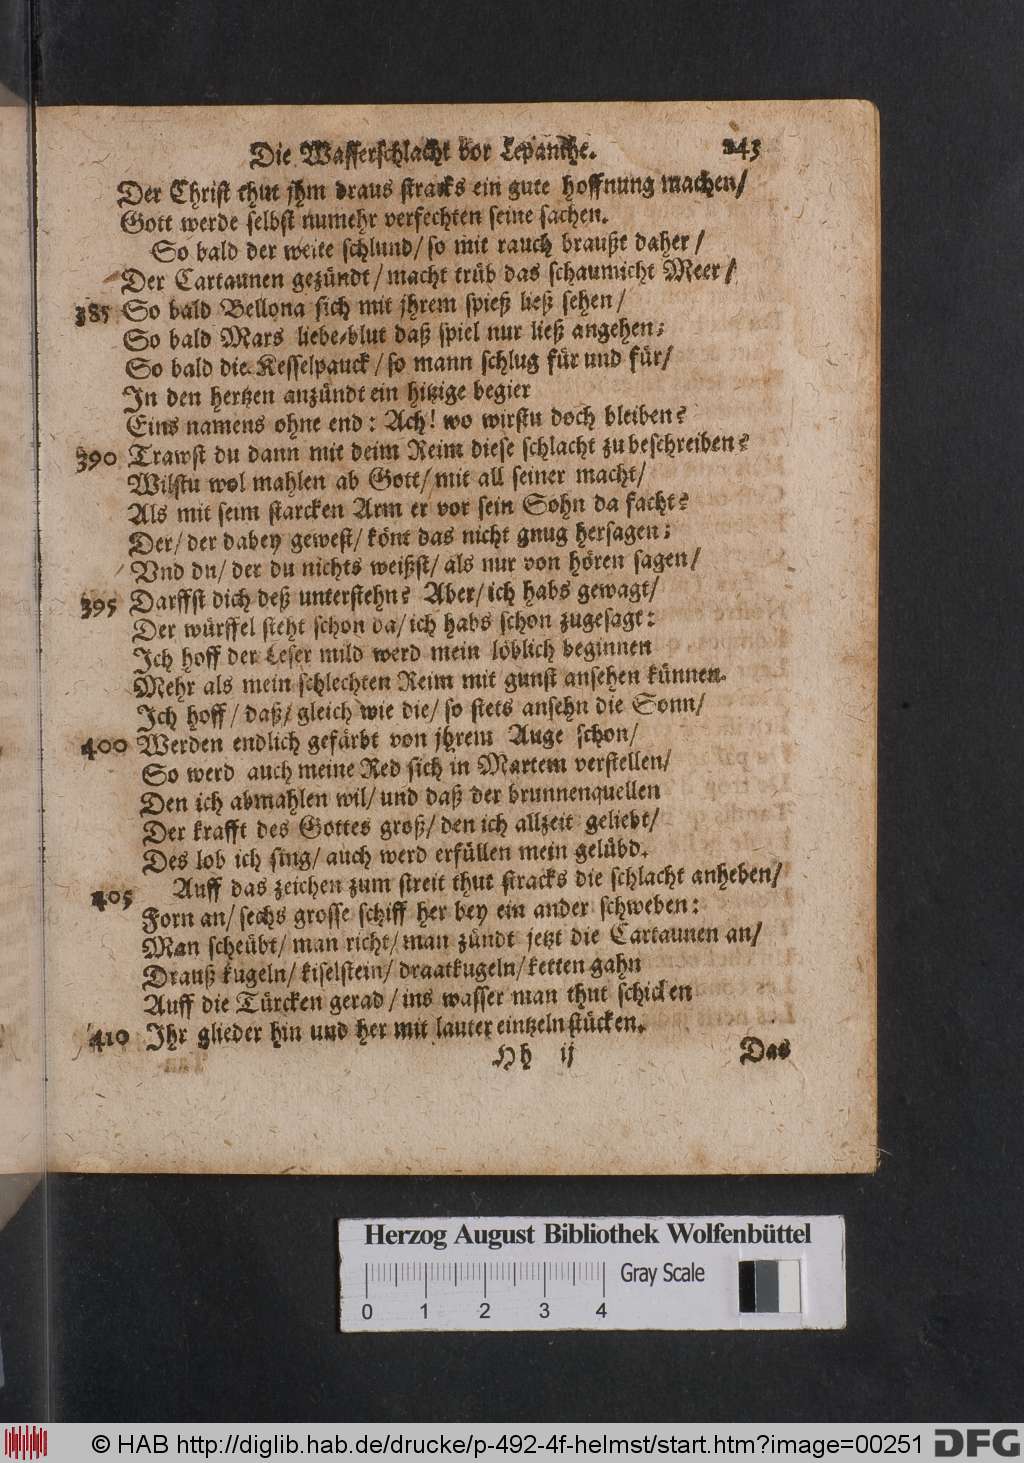 Die Wasserschlacht vor Lepanthe. 243
Der Christ thut jhm draus stracks ein gute hoffnung machen/
Gott werde selbst numehr verfechten seine sachen.
So bald der weite schlund/ so mit rauch braußt daher/
Der Cartaunen gezündt/ macht trüb das schaumicht Meer/
385 So bald Bellona sich mit jhrem spieß ließ sehen/
So bald Mars liebe-blut daß spiel nur ließ angehen;
So bald die Kesselpauck/ so mann schlug für und für/
In den hertzen anzündt ein hitzige begier
Eins namens ohne end: Ach! wo wirstu doch bleiben?
390 Trawst du dann mit deim Reim diese schlacht zu beschreiben?
Wilstu wol mahlen ab Gott/ mit all seiner macht/
Als mit seim starcken Arm er vor sein Sohn da facht?
Der/ der dabey gewest/ könt das nicht gnug hersagen;
Vnd du/ der du nichts weißst/ als nur von hören sagen/
395 Darffst dich deß unterstehn? Aber/ ich habs gewagt/
Der würffel steht schon da/ ich habs schon zugesagt:
Ich hoff der Leser mild werd mein löblich beginnen
Mehr als mein schlechten Reim mit gunst ansehen künnen.
Ich hoff/ daß/ gleich wie die/ so stets ansehn die Sonn/
400 Werden endlich gefärbt von jhrem Auge schon/
So werd auch meine Red sich in Martem verstellen/
Den ich abmahlen wil/ und daß der brunnenquellen
Der krafft des Gottes groß/ den ich allzeit geliebt/
Des lob ich sing/ auch werd erfüllen mein gelübd.
405 Auff das zeichen zum streit thut stracks die schlacht anheben/
Forn an/ sechs grosse schiff her bey ein ander schweben:
Man scheübt/ man richt/ man zündt jetzt die Cartaunen an/
Drauß kugeln/ kiselstein/ draatkugeln/ ketten gahn
Auff die Türcken gerad/ ins wasser man thut schicken
410 Ihr glieder hin und her mit lauter eintzeln stücken.
Hh ij Das
Herzog August Bibliothek Wolfenbüttel
Gray Scale
0 1 2 3 4
© HAB http://diglib.hab.de/drucke/p-492-4f-helmst/start.htm?image=00251 DFG